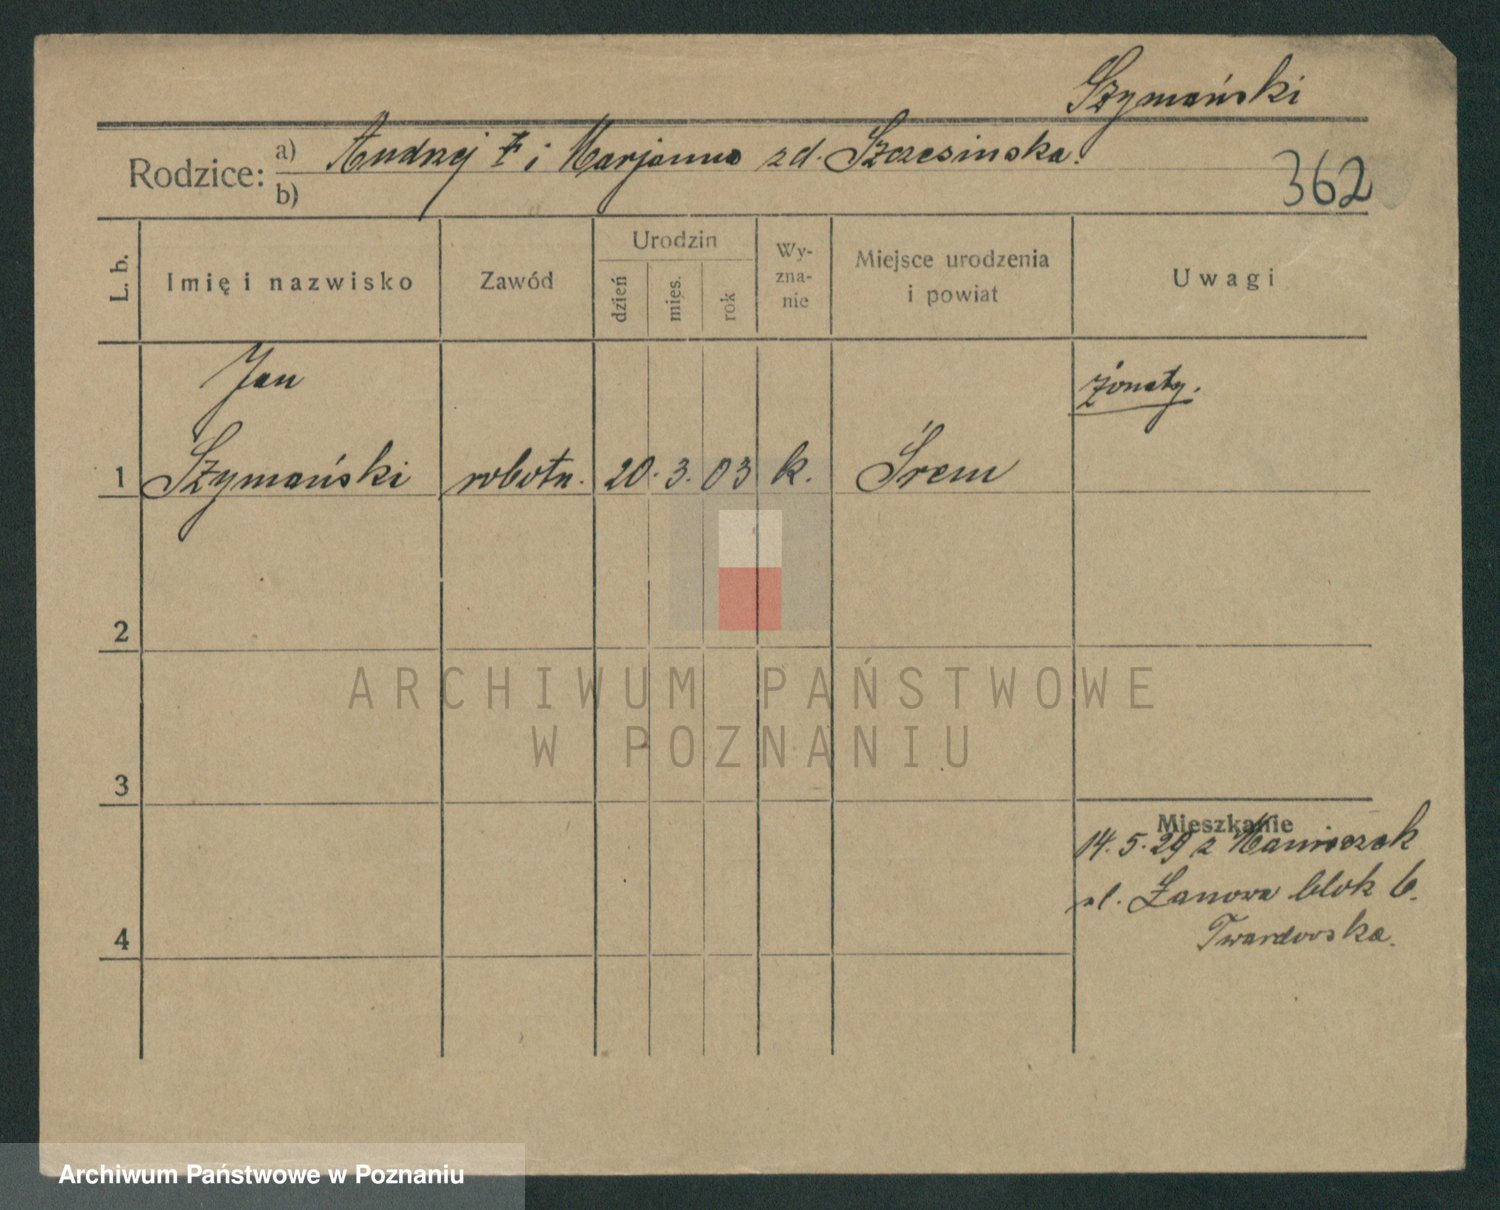 Szymański
Rodzice: a) Andrzej † i Marjanna zd. Szczesinska.
b)
362
L. b.
Imię i nazwisko
Zawód
Urodzin
dzień
mies.
rok
Wy-
zna-
nie
Miejsce urodzenia
i powiat
Uwagi
Jan
żonaty.
1 Szymański robotn. 20. 3. 03 k. Śrem
2
ARCHIWUM PAŃSTWOWE
W POZNANIU
3
Mieszkanie
14. 5. 29 z
ul. Łanowa blok 6.
4
Twardowska.
Archiwum Państwowe w Poznaniu